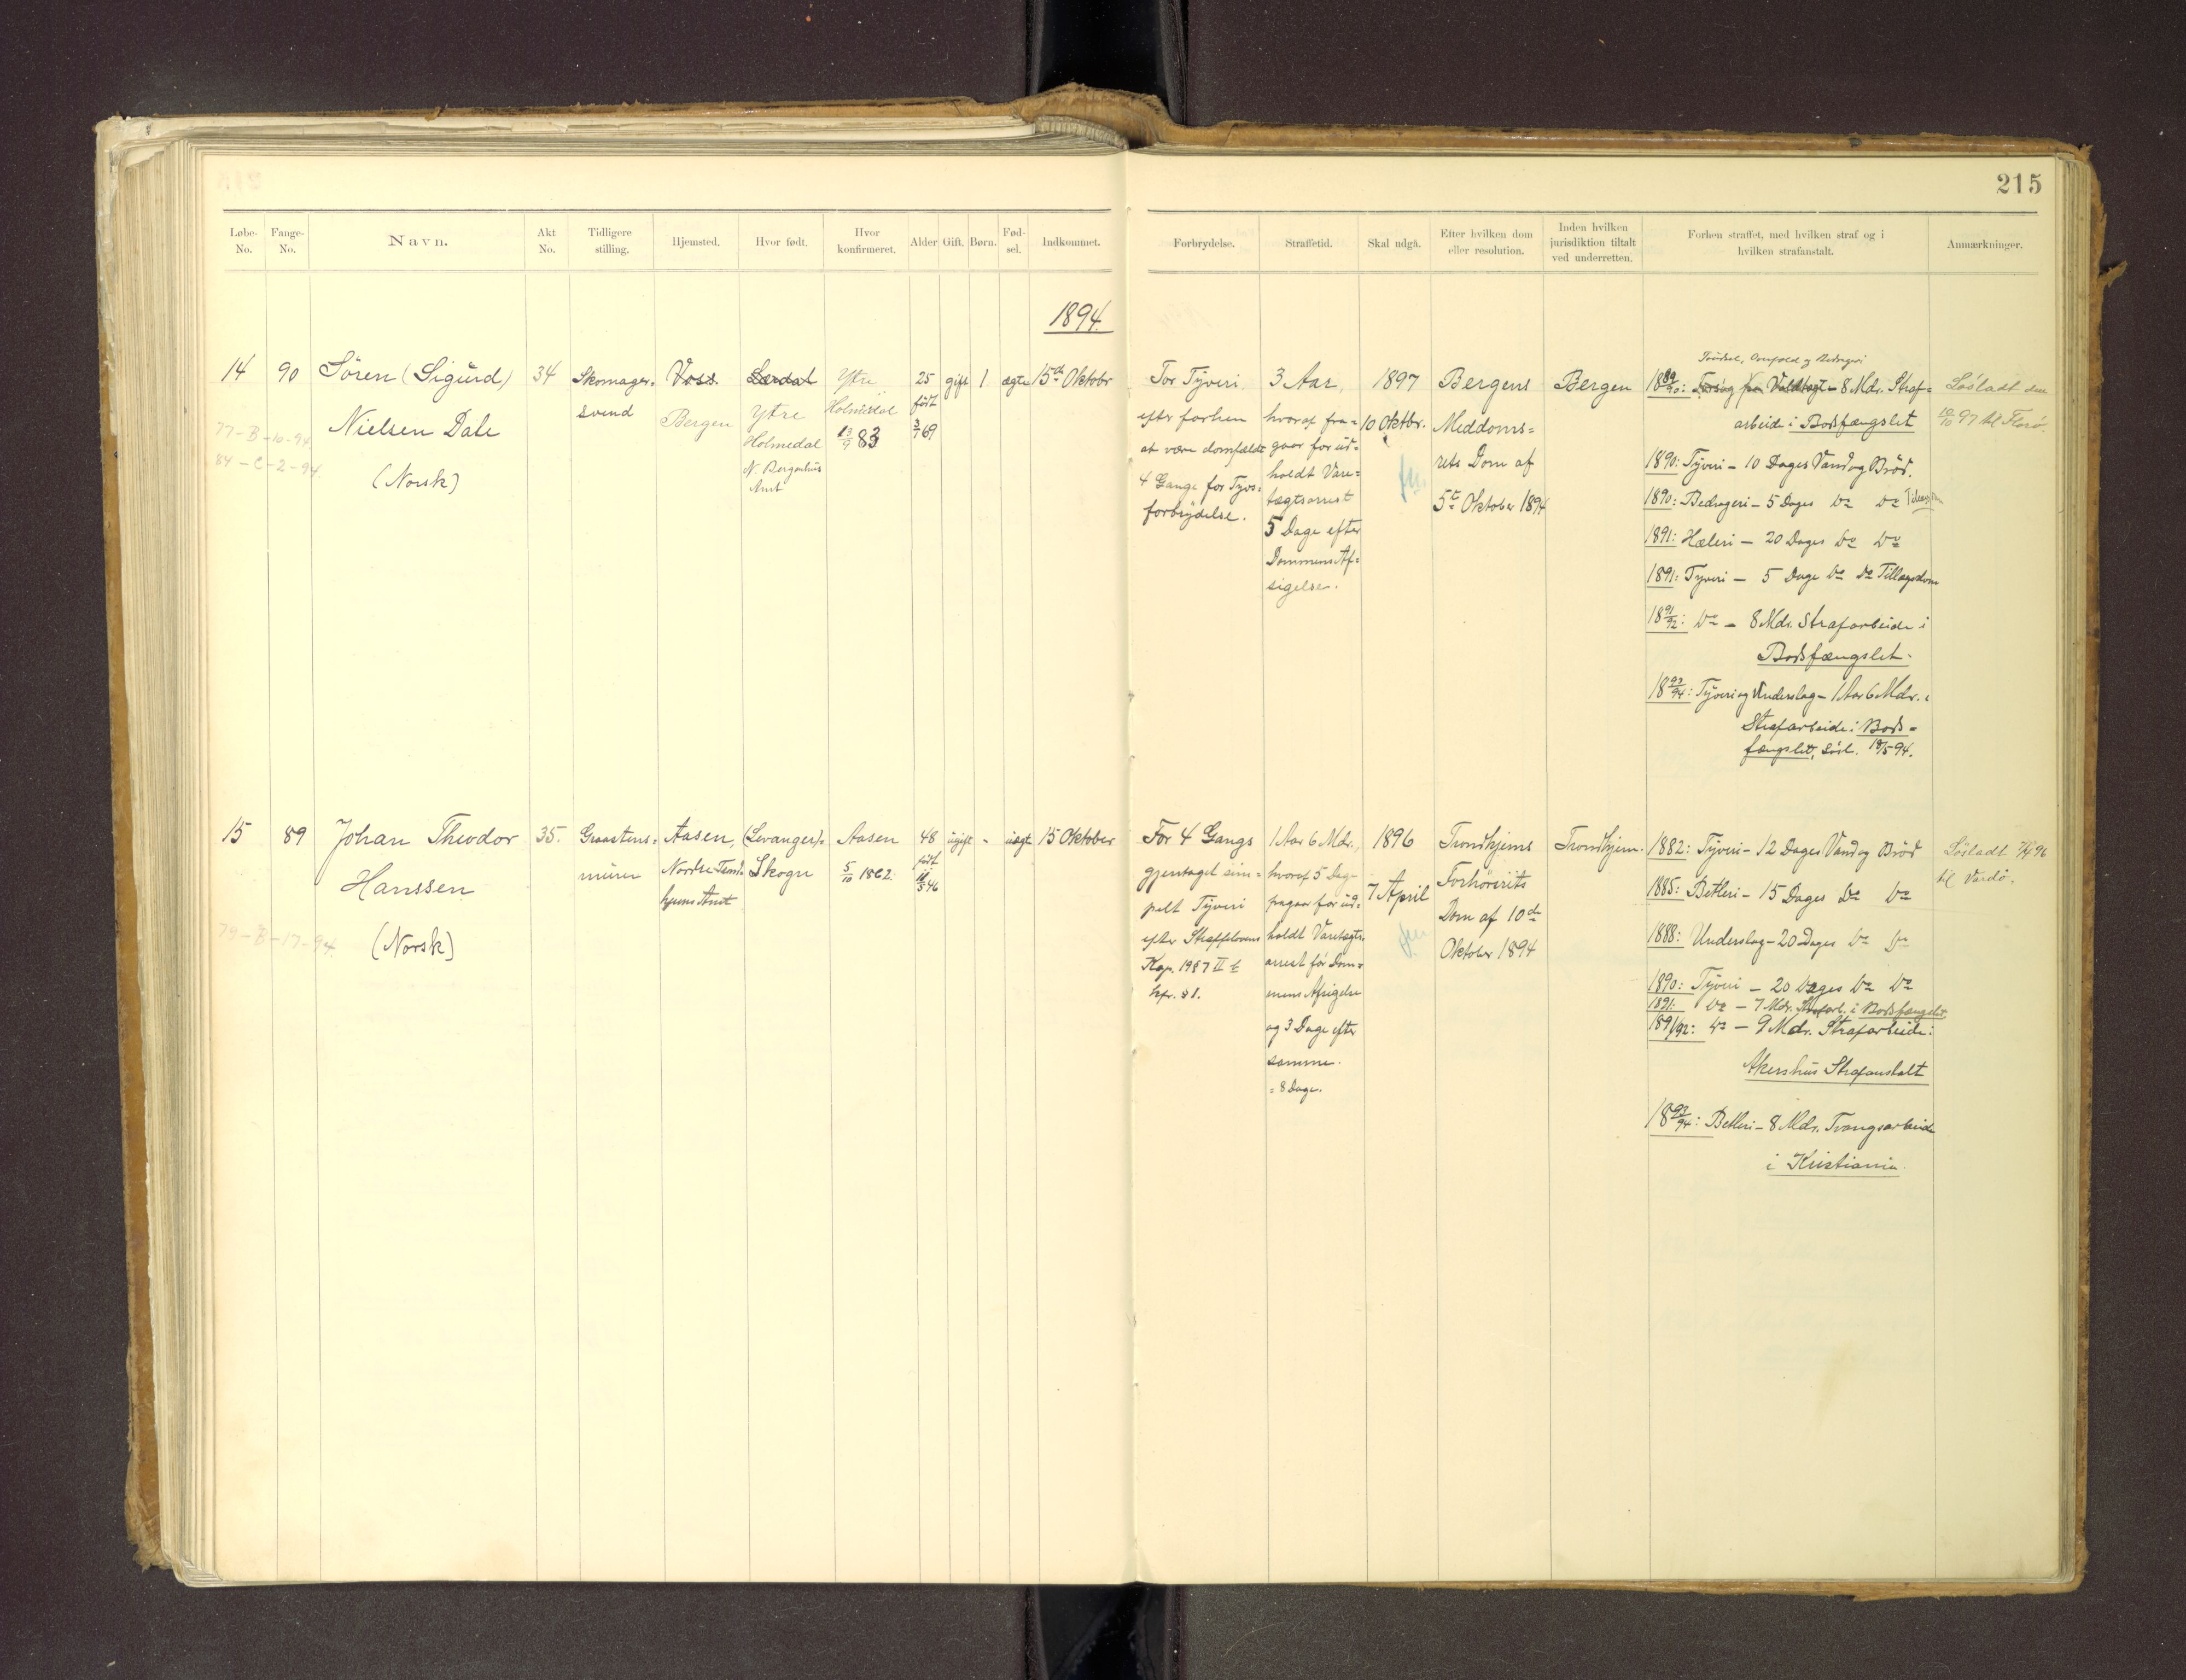 215
Løbe-No.
Fange-No.
Navn.
Akt No.
Tidligere stilling.
Hjemsted.
Hvor født.
Hvor konfirmeret.
Alder
Gift.
Børn.
Fød-sel.
Indkommet.
Forbrydelse.
Straffetid.
Skal udgå.
Efter hvilken dom eller resolution.
Inden hvilken jurisdiktion tiltalt ved underretten.
Forhen straffet, med hvilken straf og i hvilken strafanstalt.
Anmærkninger.
1894
14
77-B-10-94.
84-C-2-94
90
Sören (Sigurd)
Nielsen Dale
(Norsk)
34
Skomager=
svend
Voss.
Bergen
Lærdal
Ytre
Holmedal
N. Bergenhus
Amt
Ytre
Holmedal
83
25
født
3/7 69
gift
1
ægte
15de Oktobr
For Tyveri,
efter forhen
at være domfældt
4 Gange for Tyvs=
forbrydelse.
3 Aar,
hvoraf fra=
gaar for ud=
holdt Vare=
tægtsarrest
5 Dage efter
Dommens Af=
sigelse.
1897
10 Oktbr.
Bergens
Meddoms=
rets Dom af
5te Oktober 1894
Bergen
Trudsel, Overfald og Bedrageri
18 89/90: Forsøg paa Voldtægt - 8 Mdr. Straf=
arbeide i Bodsfængslet
1890: Tyveri - 10 Dages Vand og Bröd.
1890: Bedrageri - 5 Dages Do Do
1891: Hæleri - 20 Dages Do Do
1891: Tyveri - 5 Dage Do Do Tillægsdom
18 91/92: Do - 8 Mdr. Strafarbeide i
Bodsfængslet.
18 93/94: Tyveri og Underslag - 1 Aar 6 Mdr.
Strafarbeide i Bods=
fængslet, Løsl. 18/5 94.
Løsladt den
10/10 97 til Florø.
15
79-B-17-94.
89
Johan Theodor
Hanssen
(Norsk)
35.
Graastens=
murer
Aasen,
Nordre Trond=
hjems Amt
(Levanger)=
Skogn
Aasen
5/10 1862.
48
født
46
ugift
-
uægte
15 Oktober
For 4 Gangs
gjentaget sim=
pelt Tyveri
efter Straffelovens
Kap. 19 § 7 II
kfr. § 1.
1 Aar 6 Mdr.,
hvoraf 5 Dag-
fragaar for ud=
holdt Varetægts.
arrest før Dom=
mens Afsigelse
og 3 Dage efter
samme.
= 8 Dage.
1896
7 April
Trondhjems
Forhörsrets
Dom af 10de
Oktober 1894
Trondhjem.
1882: Tyveri - 12 Dages Vand og Bröd
1885: Betleri - 15 Dages Do Do
1888: Underslag - 20 Dages Do Do
1890: Tyveri - 20 Dages Do Do
1891: Do - 7 Mdr. Strafarb. i Bodsfængslet
1891/92: Do - 9 Mdr. Strafarbeide i
Akershus Strafanstalt
18 93/94: Betleri - 8 Mdr. Tvangsarbeide
i Kristiania.
Løsladt 7/4 96
til Vardø.